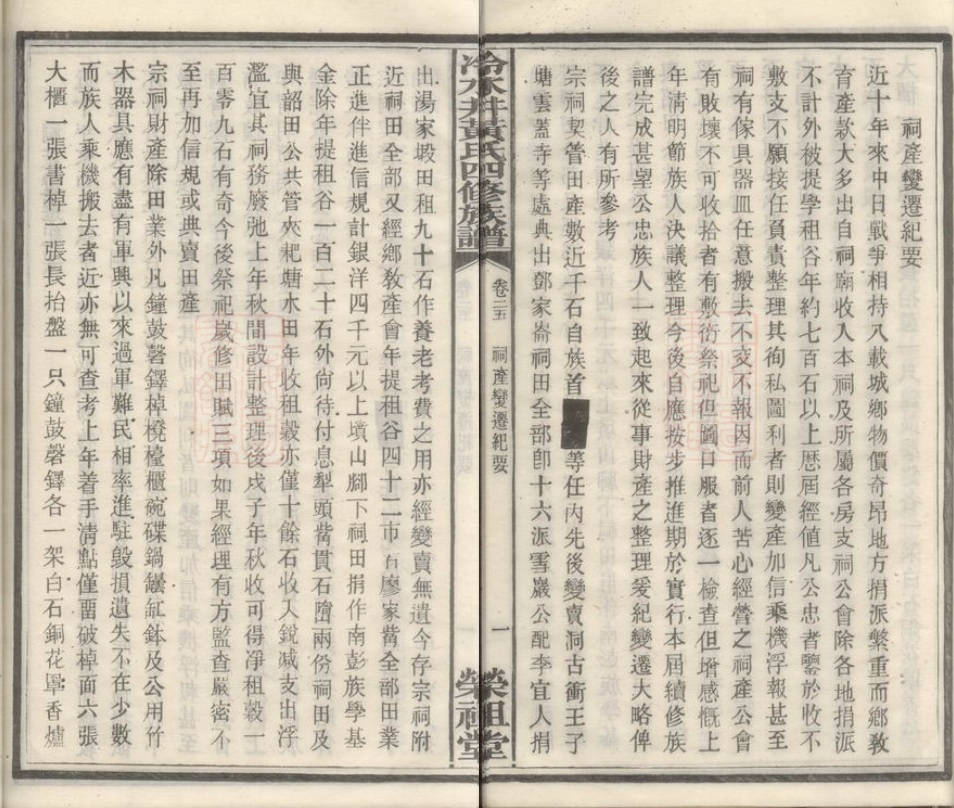 祠產變遷紀要
近十年來中日戰爭相持八載城鄉物價奇昂地方捐派繁重而鄉敎
育產款大多出自祠廟收人本祠及所屬各房支祠公會除各地捐派
不計外被提學租谷年約七百石以上歷屆經值凡公忠者鑒於收不
敷支不願接任負責整理其徇私圖利者則變產加信乘機浮報甚至
祠有傢具器皿任意搬去不交不報因而前人苦心經營之祠產公會
有敗壞不可收拾者有敷衍祭祀但圖口服者逐一檢查但增感慨上
年清明節族人決議整理今後自應按步推進期於實行本屆續修族
譜完成甚望公忠族人一致起來從事財產之整理爰紀變遷大略俾
後之人有所參考
宗祠契管田產數近千石自族首 等任內先後變賣洞古衝王子
塘雲蓋寺等處典出鄧家崙祠田全部卽十六派雪巖公配李宜人捐
冷水井黃氏四修族譜
卷二五
祠產變遷紀要
一
榮祖堂
出湯家塅田租九十石作養老考費之用亦經變賣無遺今存宗祠附
近祠田全部又經鄉敎產會年提租谷四十二市石廖家嵅全部田業
正進伴進信規計銀洋四千元以上墳山腳下祠田捐作南彭族學基
金除年提租谷一百二十石外尙待付息犁頭嵅貫石磖兩份祠田及
與韶田公共管夾耙塘水田年收租穀亦僅十餘石收入銳減支出浮
濫宜其祠務廢弛上年秋間設計整理後戊子年秋收可得淨租穀一
百零九石有奇今後祭祀歲修田賦三項如果經理有方監查嚴密不
至再加信規或典賣田產
宗祠財產除田業外凡鐘鼓磬鐸棹櫈檯櫃碗碟鍋罎缸鉢及公用竹
木器具應有盡有軍興以來過軍難民相率進駐毀損遺失不在少數
而族人乘機搬去者近亦無可查考上年着手清點僅畱破棹面六張
大櫃一張書棹一張長抬盤一只鐘鼓磬鐸各一架白石銅花甼香爐